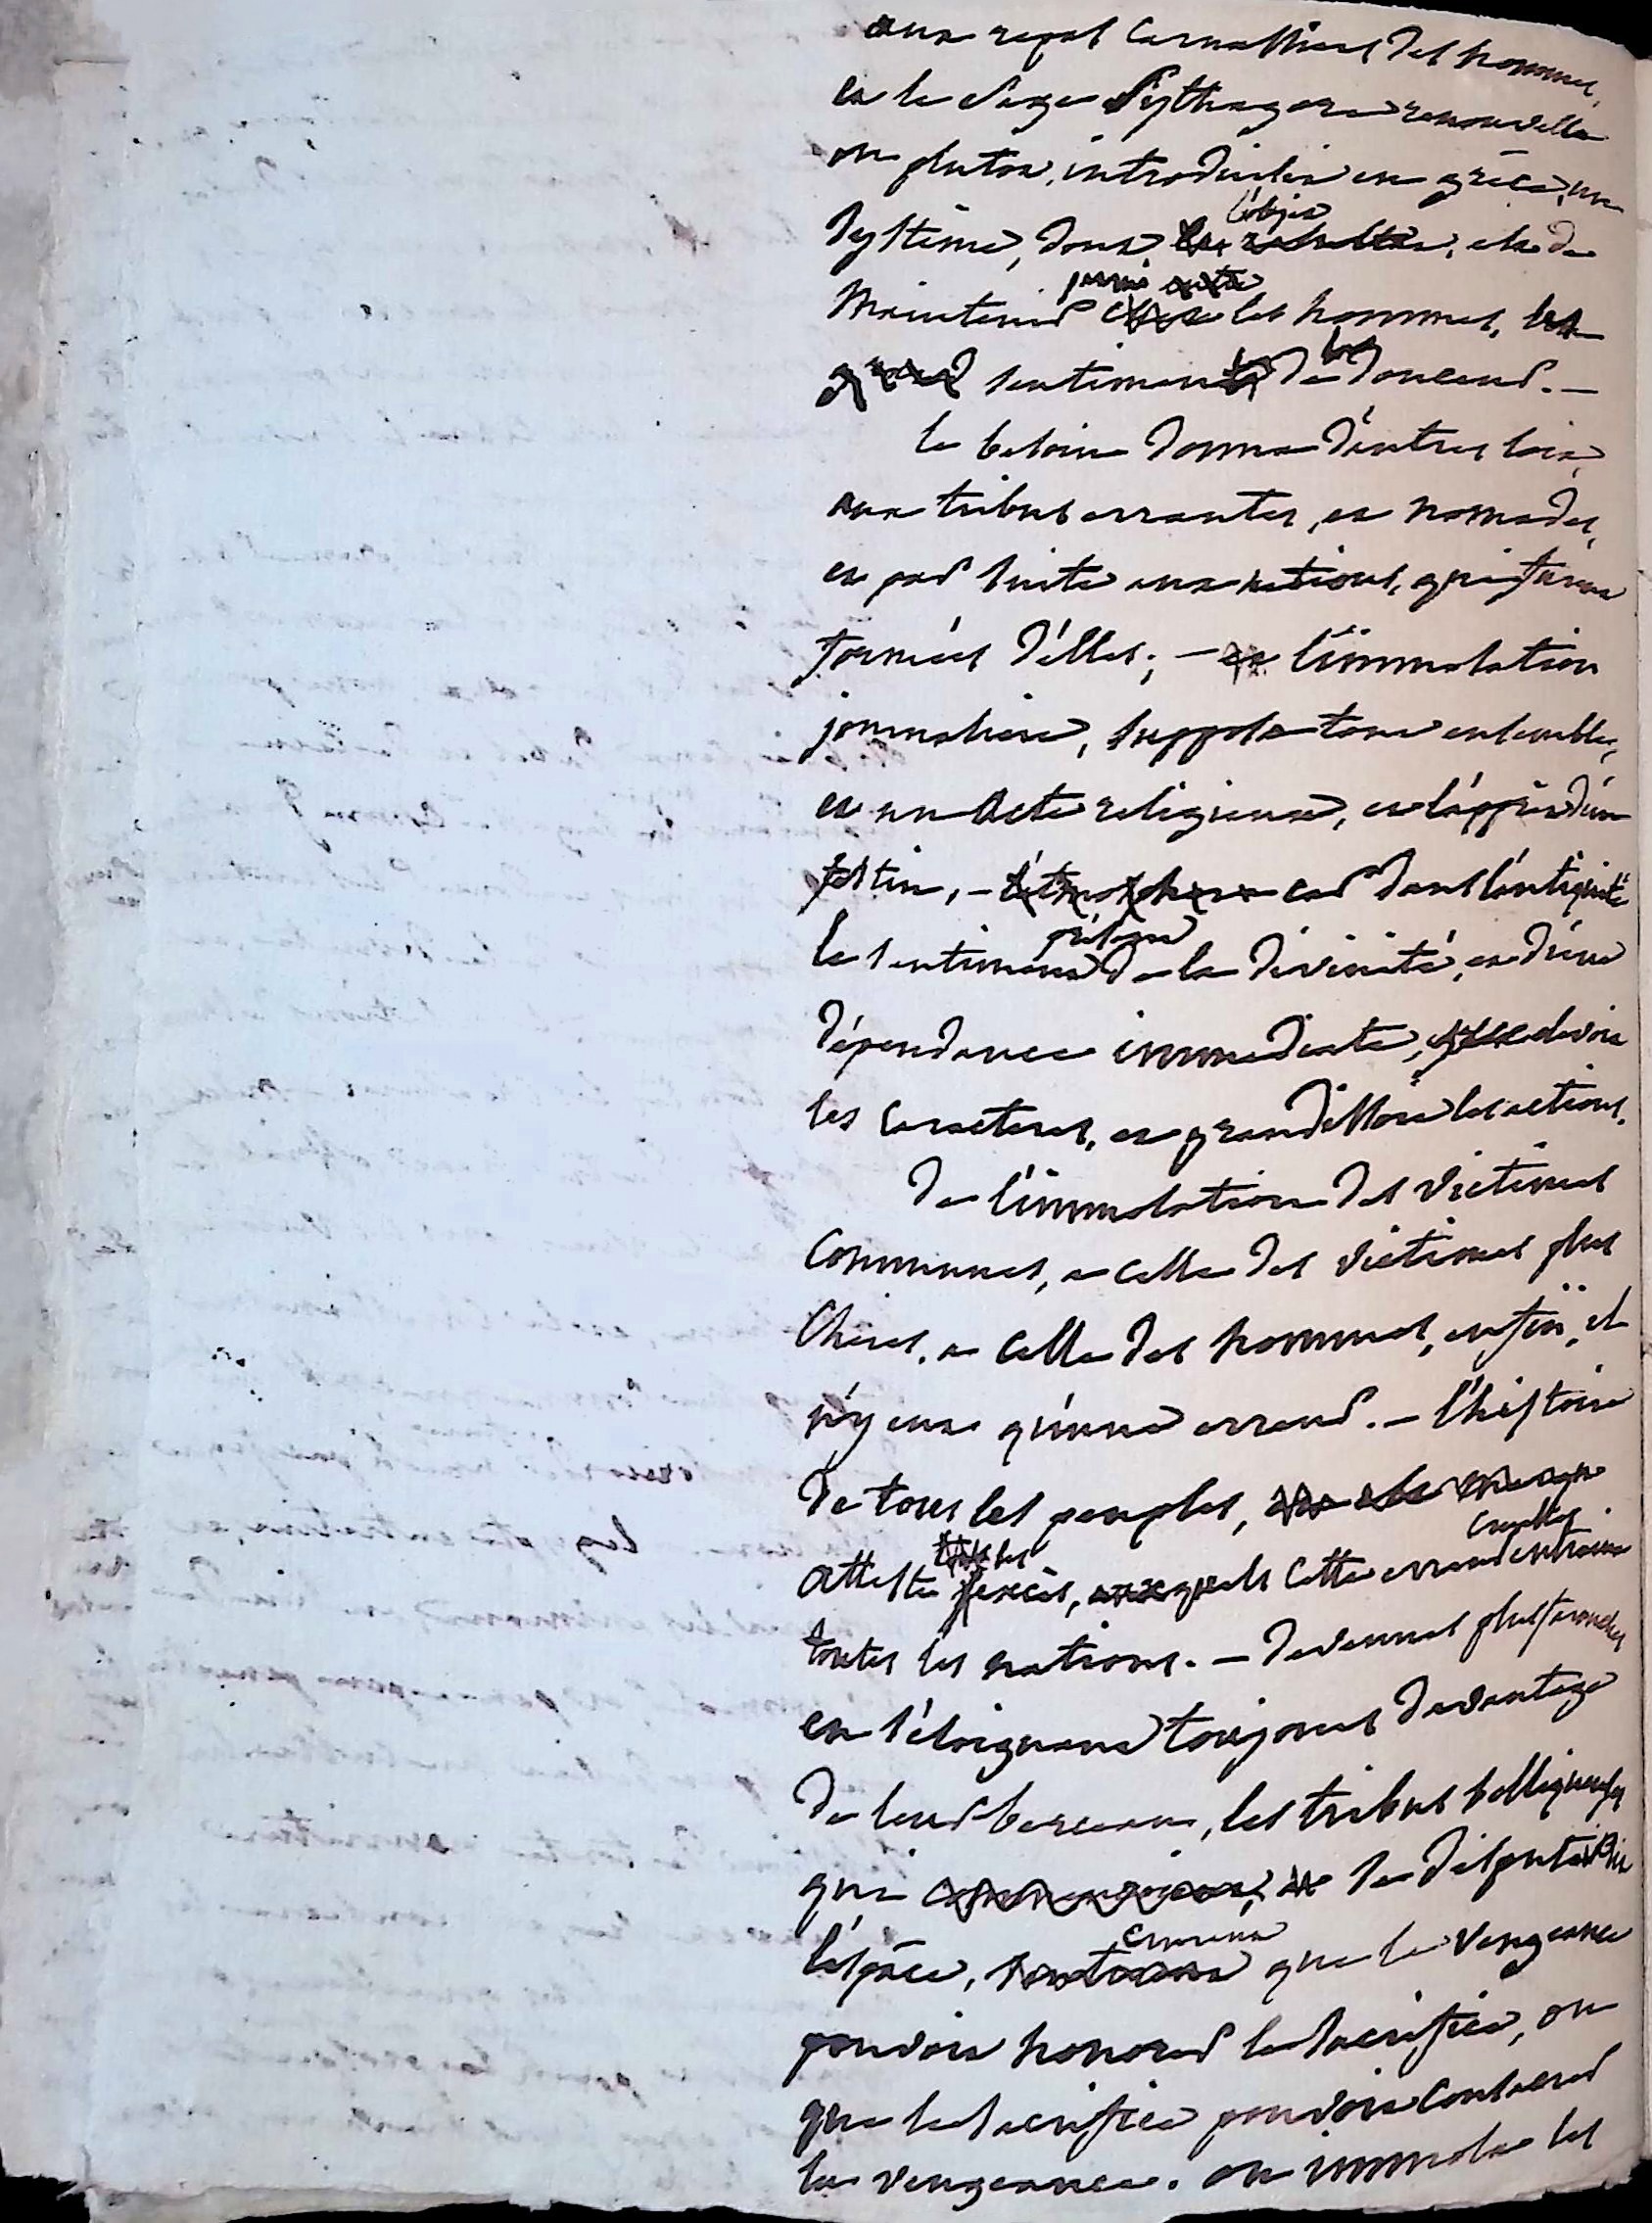 aux repas carnassiers des hommes,
et le sage Pythagore renouvella
ou plutot, introduisit en grèce, un
l'objet
systême, dont, le résultat, est de
parmi
maintenir chez les hommes, les
grand sentimens de douceur. —
le besoin donna d'autres loix,
aux tribus errantes, et nomades,
et par suite aux nations, qui furent
formées d'elles; — et l'immolation
journaliere, supposa tout ensemble,
et un acte religieux, et l'apprêt d'un
festin, — car dans l'antiquité
présent
le sentiment de la divinité, et d'une
dépendance immediate, elevoit
les caracteres, et grandissoit les actions.
de l'immolation des victimes
communes, a celle des victimes plus
cheres, a celle des hommes, enfin, il
n'y eut qu'une erreur. — l'histoire
de tous les peuples,
les cruelles
atteste excès, auxquels cette erreur entraina
toutes les nations. — devenues plus farouches
en s'éloignant toujours davantage
de leur berceau, les tribus belliqueuses
qui se disputoient
crurent
l'espace, que la vengeance
pouvoit honorer le sacrifice, ou
que le sacrifice pouvoit consacrer
la vengeance. on immola les